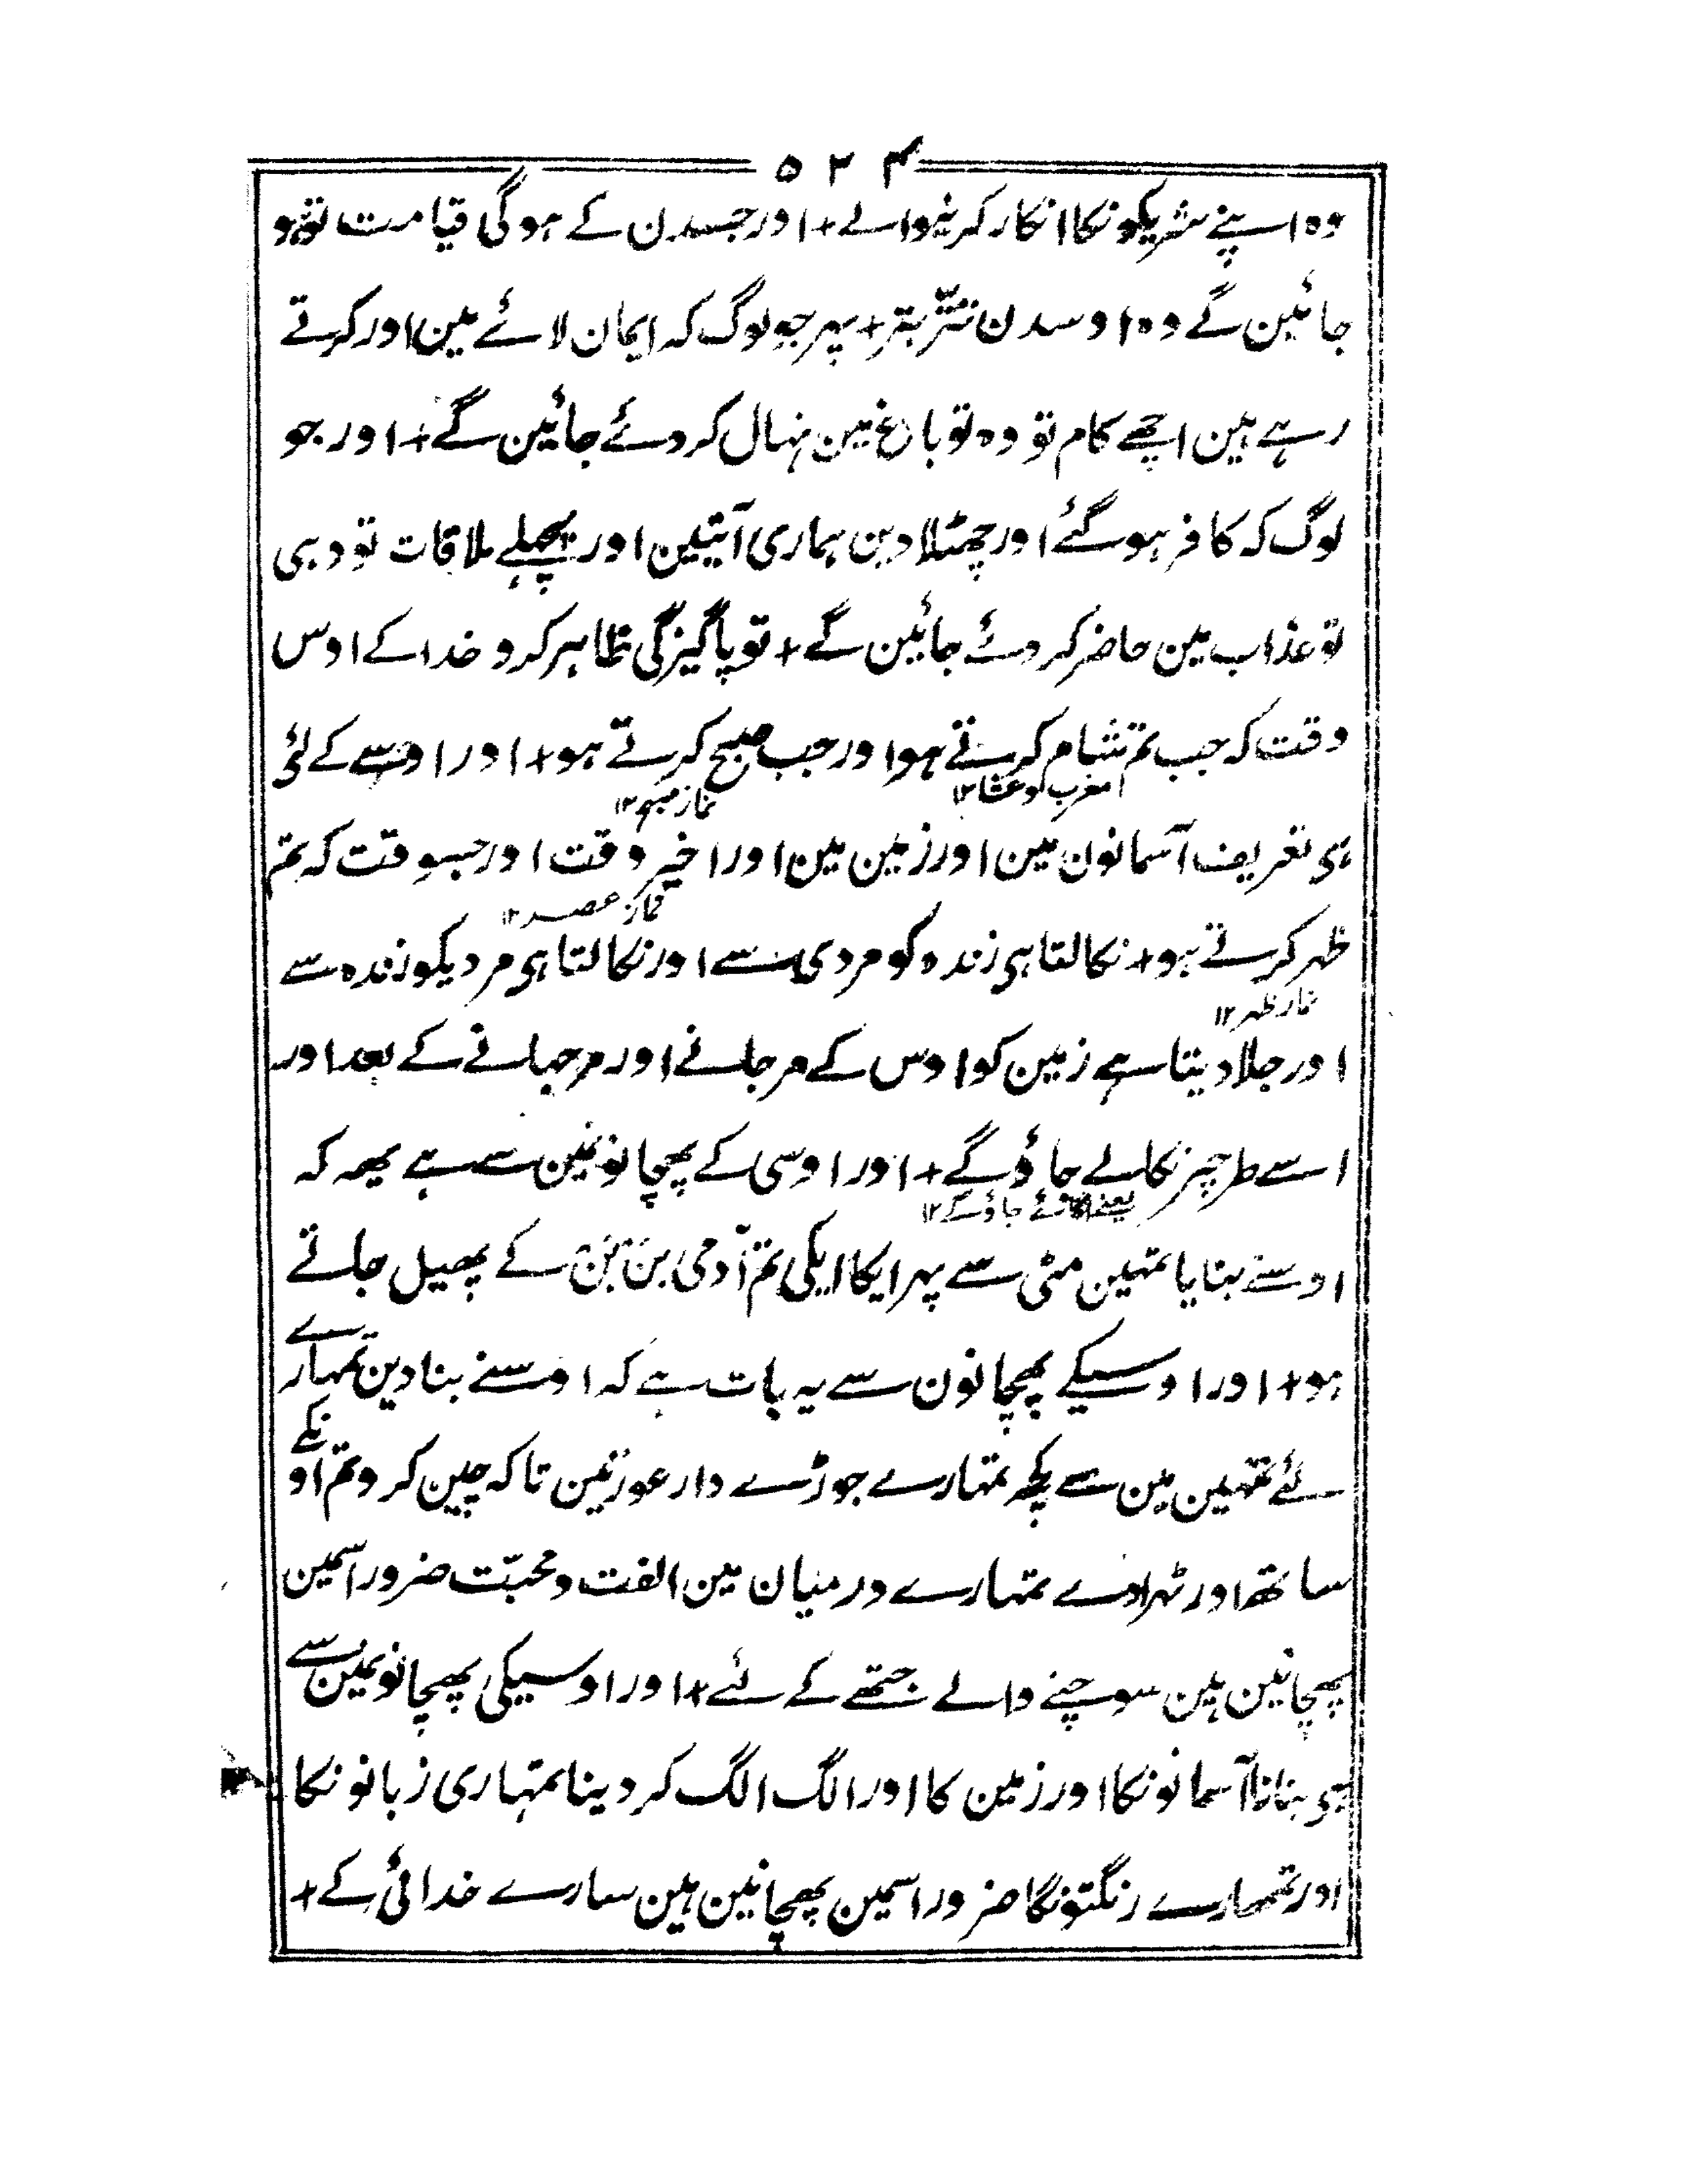 ۵۲۴
وہ اپنے شریکونکا انکار کرنیوالے + اور جسدن کے ہوگی قیامت تو ہو
جائین گے وہ اوسدن تتّر بتر + پہر جو لوگ کہ ایمان لائے مین اور کرتے
رہے ہین اچھے کام تو وہ تو باغ مین نہال کر دئے جائین گے + اور جو
لوگ کہ کافر ہو گئے اور جھٹلا دین ہماری آیتین اور پچھلے ملاقات تو وہی
تو عذاب مین حاضر کر دئے جائین گے + تو پاگیزگی ظاہر کرو خدا کے اوس
وقت کہ جب تم شام کرتے ہو اور جب صبح کرتے ہو + اور اوسے کے لئی
مغرب کو عشا ۱۲
نماز صبح ۱۲
ہی تعریف آسمانون مین اور زمین مین اور اخیر وقت اور جسوقت کہ تم
نماز عصر ۱۲
ظہر کرتے ہو + نکالتا ہی زندہ کو مردی سے اور نکالتا ہی مردیکو زندہ سے
نماز ظہر ۱۲
اور جلا دیتا ہے زمین کو اوس کے مر جانے اور مرجہانے کے بعد اور
اسے طرحپر نکالے جاؤگے + اور اوسی کے پہچانونمین سے ہے یہہ کہ
یعنے جاؤگے ۱۲
اوسنے بنایا تمہین مٹی سے پہر ایکا ایکی تم آدمی بن بن کے پھیل جاتے
ہو + اور اوسیکے پہچانون سے یہ بات ہے کہ اوسنے بنا دین تمہارے
لئے تمہین مین سے کچہ تمہارے جوڑے دار عورتین تاکہ چین کرو تم اونکے
ساتھ اور ٹہرا دے تمہارے درمیان مین الفت و محبّت ضرور اسمین
پہچانین ہین سوچنے والے جتھے کے لئے + اور اوسیکی پہچانونمین سے
ہی بنانا آسمانونکا اور زمین کا اور الگ الگ کر دینا تمہاری زبانونکا
اور تمھارے رنگتونکا ضرور اسمین پہچانین ہین سارے خدائی کے +